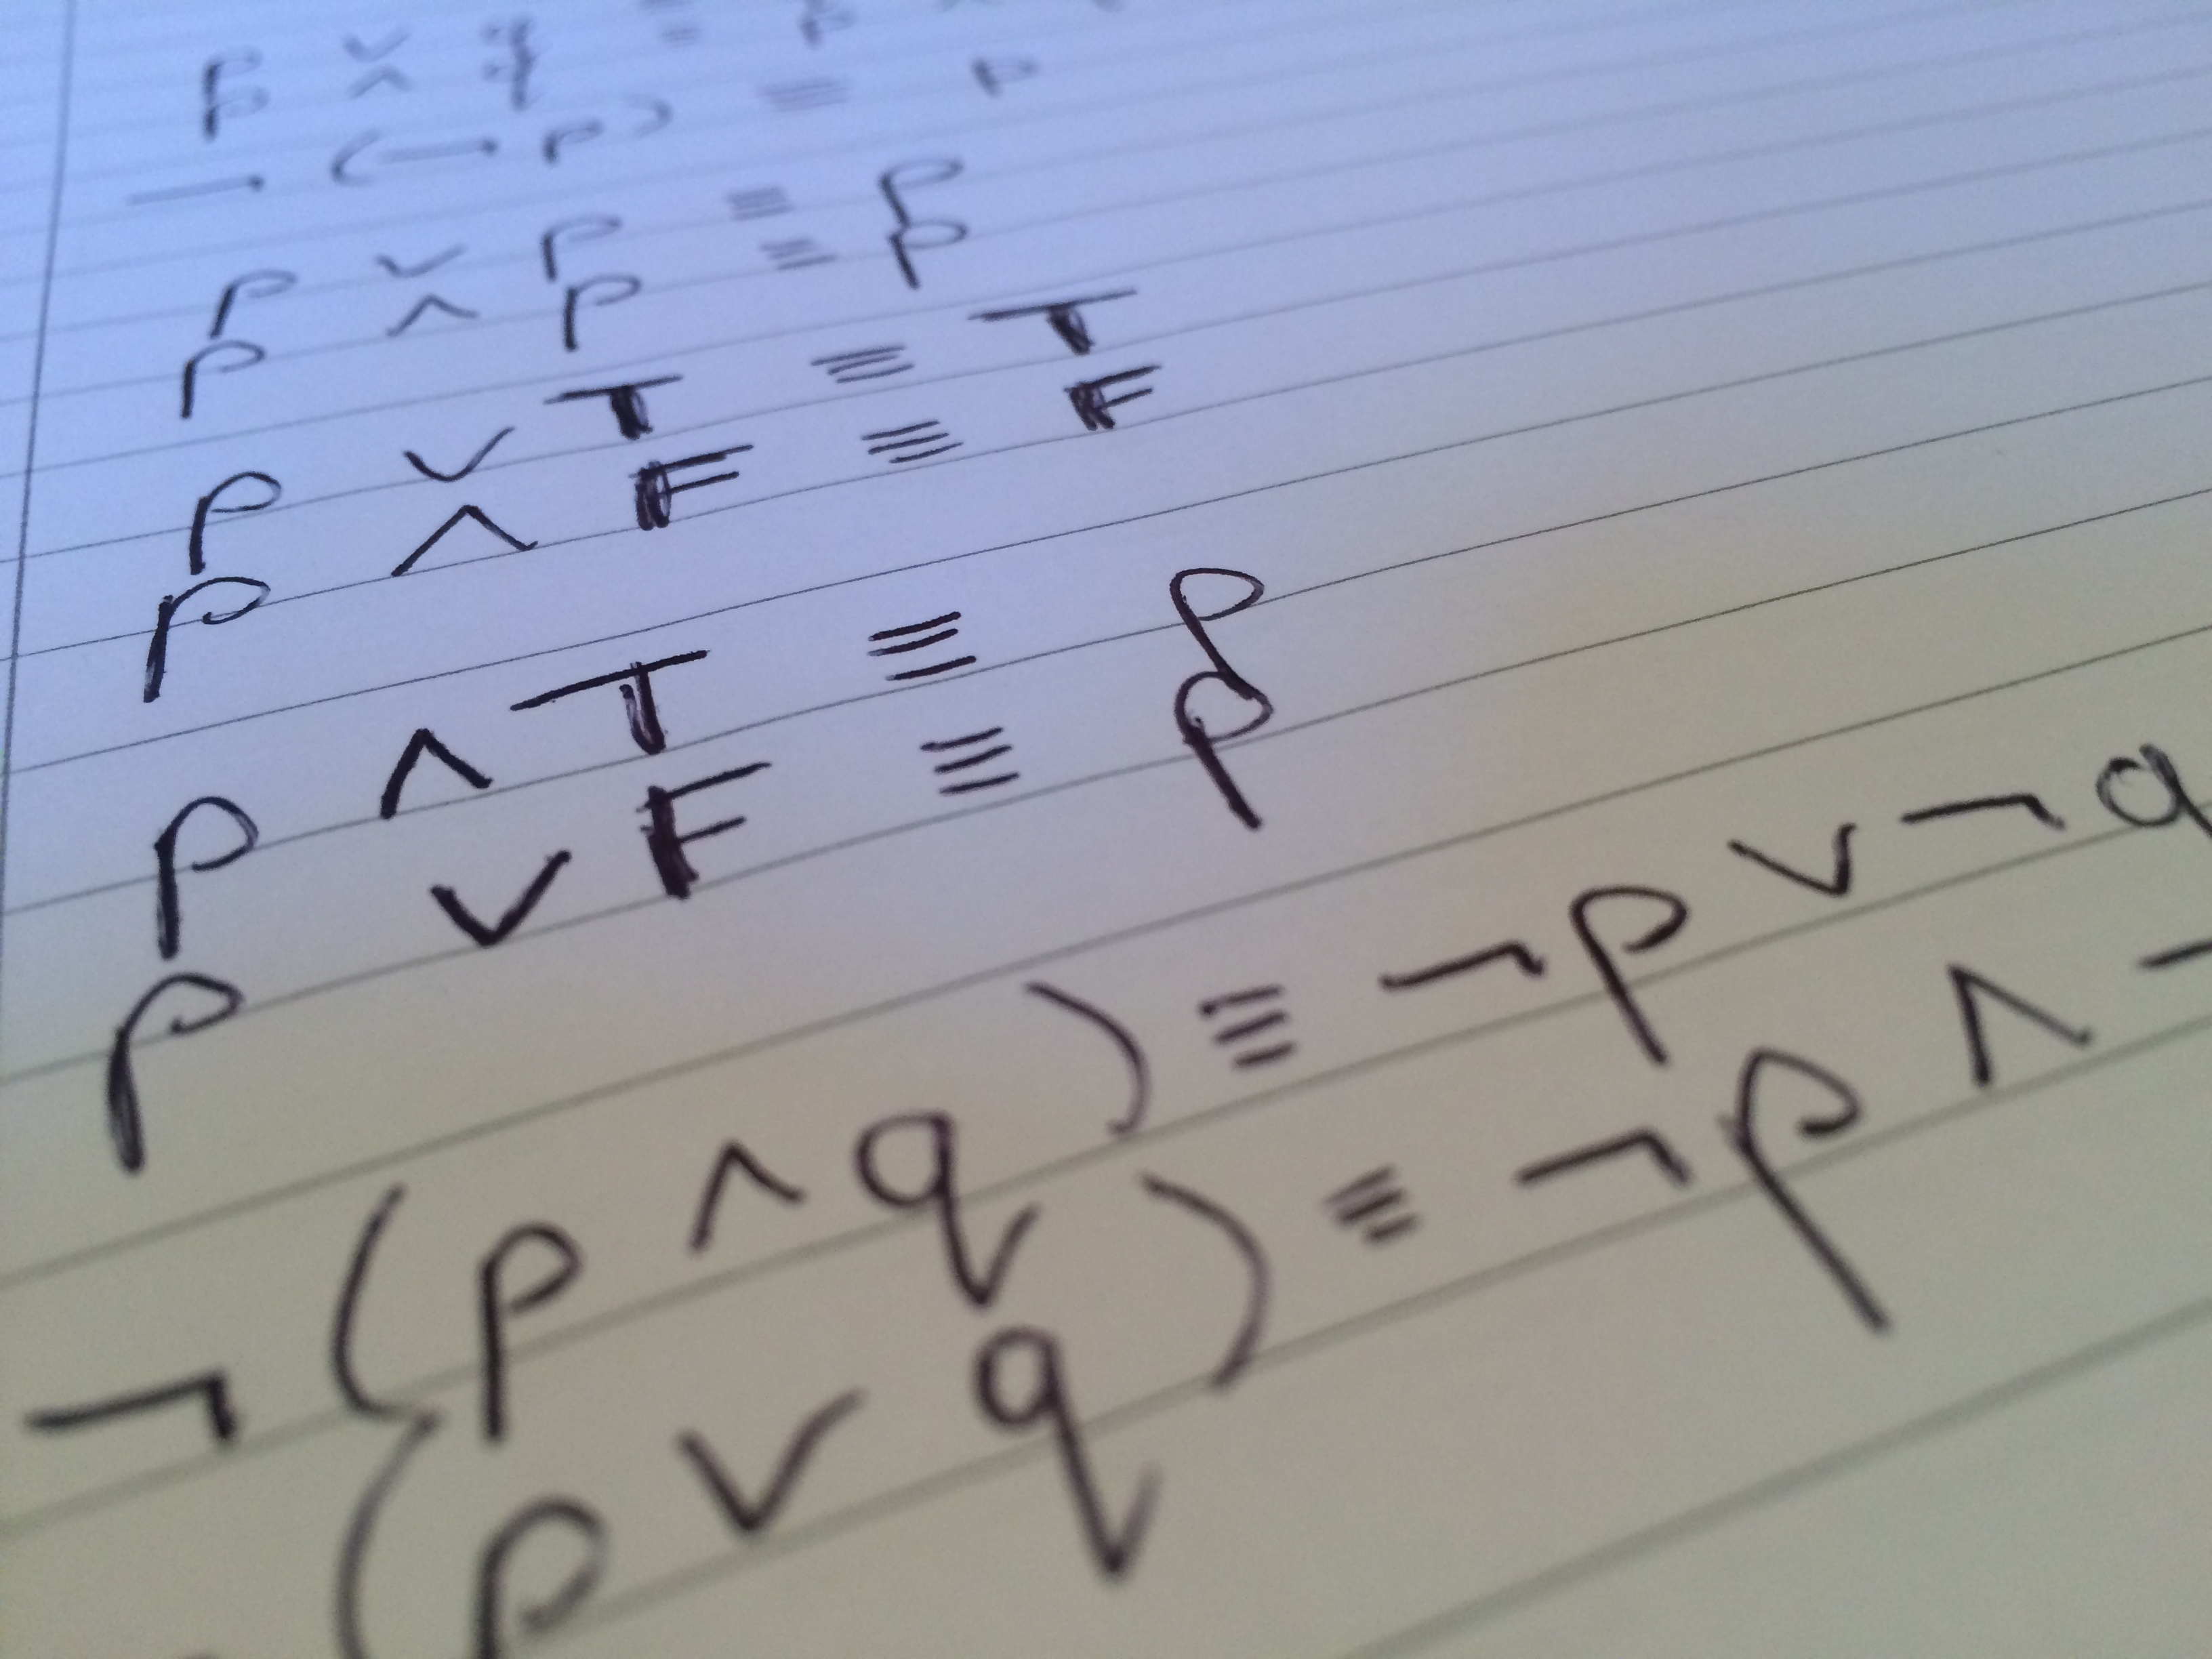 p ∨ q ≡ p
p ∧ q
¬ (¬ p) ≡ p
p ∨ p ≡ p
p ∧ p ≡ p
p ∨ T ≡ T
p ∧ F ≡ F
p ∧ T ≡ p
p ∨ F ≡ p
¬ (p ∧ q) ≡ ¬p ∨ ¬q
(p ∨ q) ≡ ¬p ∧ ¬